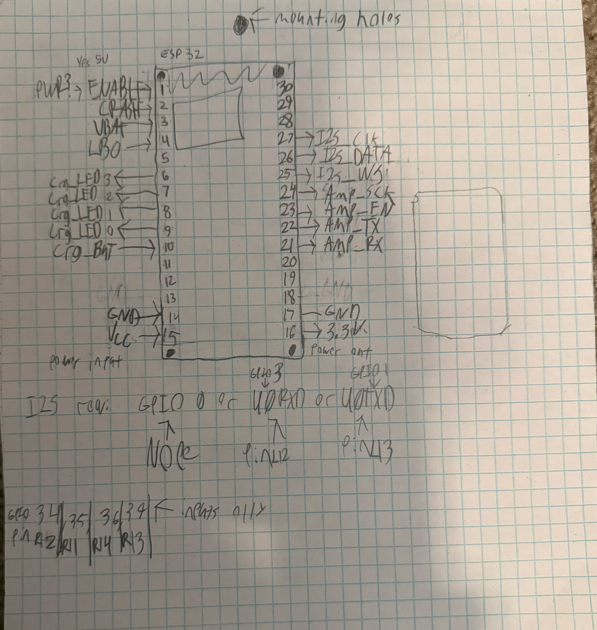 mounting holes
Yes 5V
ESP 32
PWR? → ENABLE 1
CRASH 2
VBAT 3
LBO 4
5
Crg_LED 3 6
Crg_LED 2 7
Crg_LED 1 8
Crg_LED 0 9
Crg_BAT 10
11
12
13
GND 14
VCC 15
power input
30
29
28
27 I2S_Clk
26 I2S_DATA
25 I2S_WS
24 Amp_SCK
23 Amp_EN
22 Amp_TX
21 Amp_RX
20
19
18
17 GND
16 3.3V
Power out
GPIO 3
GPIO 1
I2S req: GPIO 0 or U0RXD or U0TXD
NOPE
PinL12
PinL13
GPIO 34 35 36 39 ← inputs only
Pin R12 R11 R14 R13